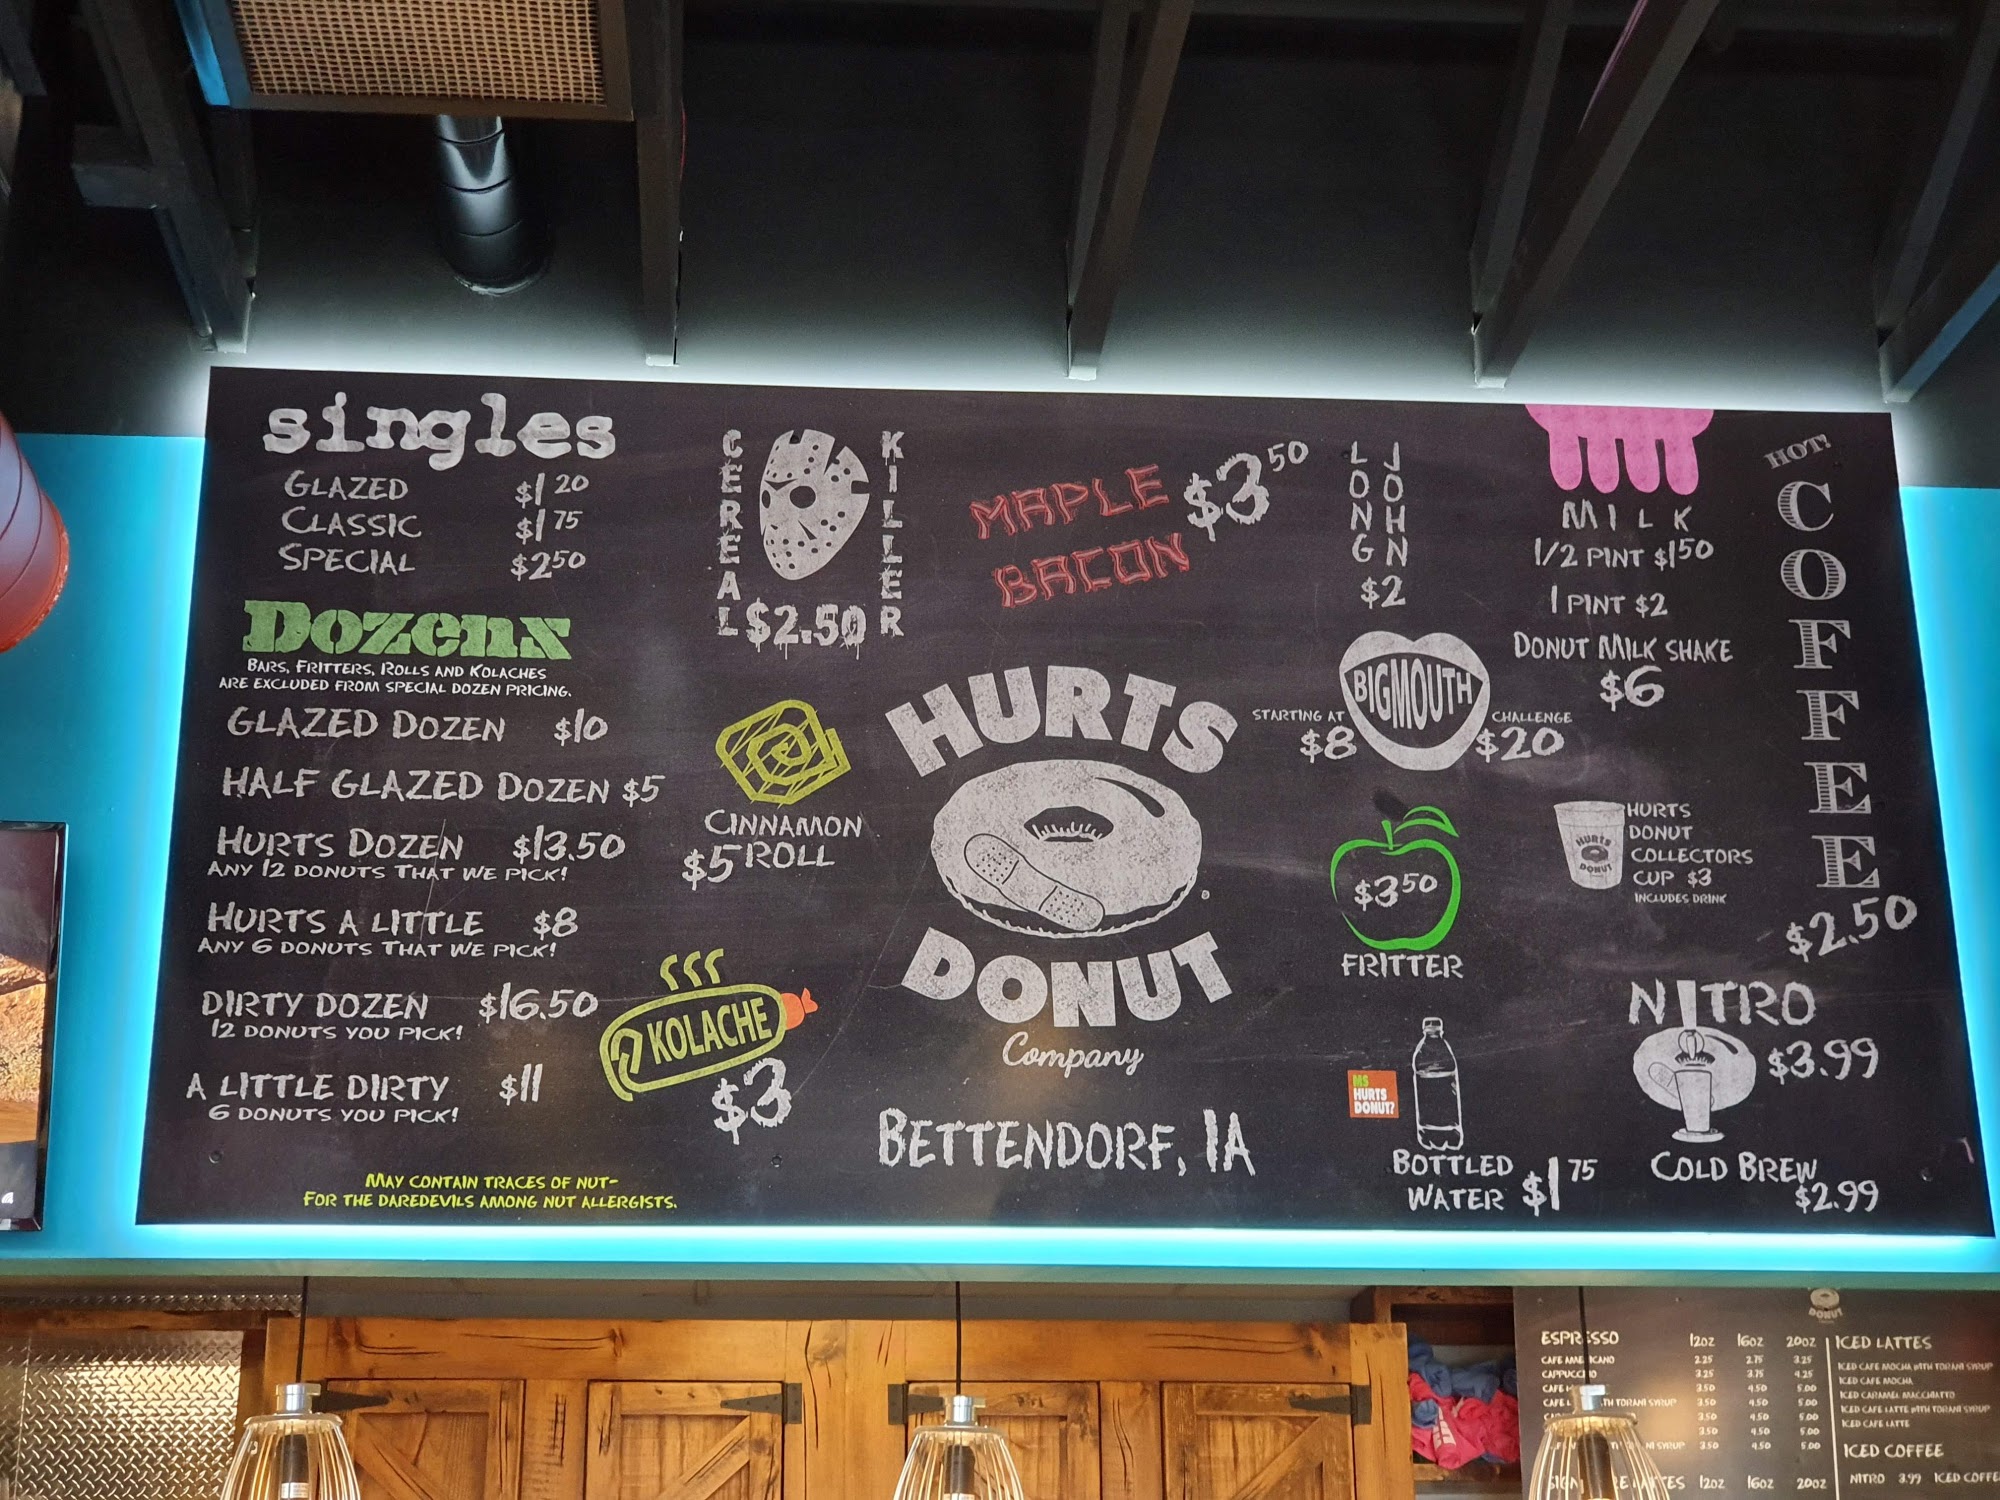 singles
GLAZED $1 20
CLASSIC $1 75
SPECIAL $2 50
DOZENS
BARS, FRITTERS, ROLLS AND KOLACHES
ARE EXCLUDED FROM SPECIAL DOZEN PRICING.
GLAZED DOZEN $10
HALF GLAZED DOZEN $5
HURTS DOZEN $13.50
ANY 12 DONUTS THAT WE PICK!
HURTS A LITTLE $8
ANY 6 DONUTS THAT WE PICK!
DIRTY DOZEN $16.50
12 DONUTS YOU PICK!
A LITTLE DIRTY $11
6 DONUTS YOU PICK!
MAY CONTAIN TRACES OF NUT-
FOR THE DAREDEVILS AMONG NUT ALLERGISTS.
CEREAL
KILLER
$2.50
CINNAMON
$5 ROLL
KOLACHE
$3
MAPLE
BACON
$3 50
HURTS
DONUT
Company
BETTENDORF, IA
LONG
JOHN
$2
BIGMOUTH
STARTING AT
$8
CHALLENGE
$20
$3 50
FRITTER
MS
HURTS
DONUT?
BOTTLED
WATER $1 75
MILK
1/2 PINT $1 50
1 PINT $2
DONUT MILK SHAKE
$6
HURTS
DONUT
HURTS
DONUT
COLLECTORS
CUP $3
INCLUDES DRINK
HOT!
COFFEE
$2.50
NITRO
$3.99
COLD BREW
$2.99
DONUT
ESPRESSO 12OZ 16OZ 20OZ
CAFE AMERICANO 2.25 2.75 3.25
CAPPUCCINO 3.25 3.75 4.25
CAFE 3.50 4.50 5.00
CAFE WITH TORANI SYRUP 3.50 4.50 5.00
3.50 4.50 5.00
3.50 4.50 5.00
SYRUP 3.50 4.50 5.00
SIGNATURE LATTES 12OZ 16OZ 20OZ
ICED LATTES
ICED CAFE MOCHA WITH TORANI SYRUP
ICED CAFE MOCHA
ICED CARAMEL MACCHIATTO
ICED CAFE LATTE WITH TORANI SYRUP
ICED CAFE LATTE
ICED COFFEE
NITRO 3.99 ICED COFFE